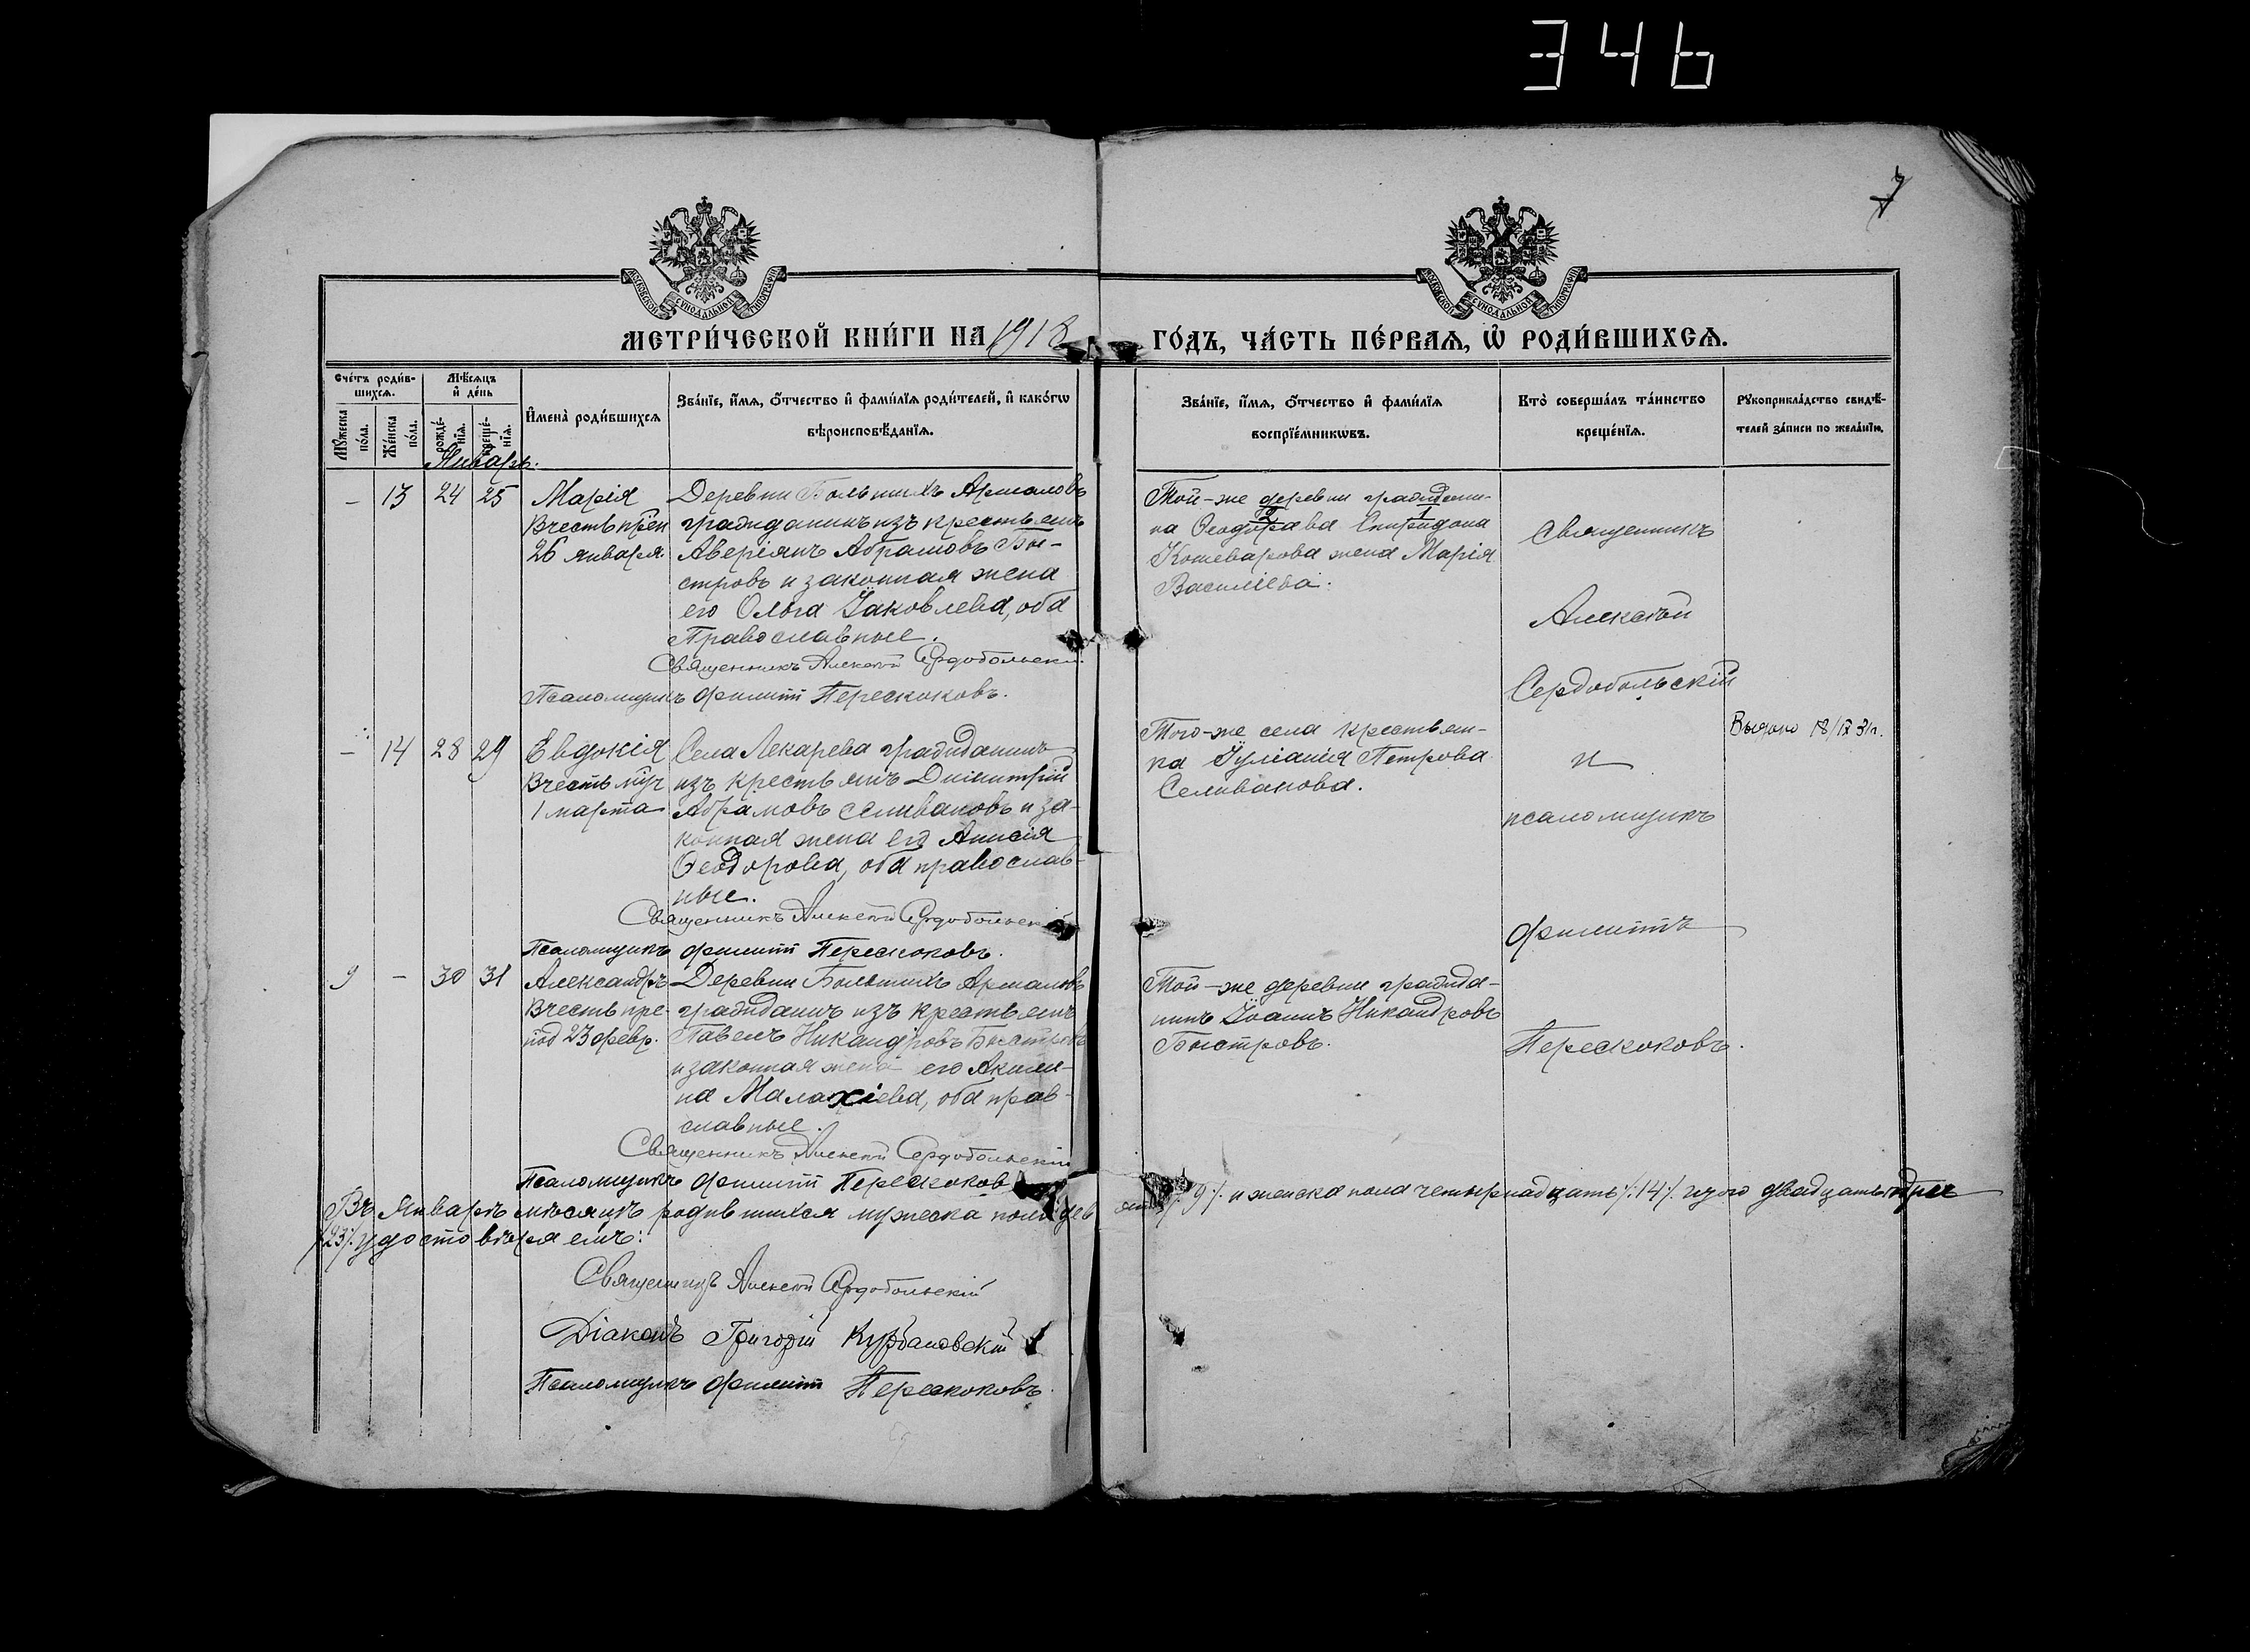 346
7
МОСКОВСКОЙ СѴНОДАЛЬНОЙ ТИПОГРАФІИ
МОСКОВСКОЙ СѴНОДАЛЬНОЙ ТИПОГРАФІИ
МЕТРИ́ЧЕСКОЙ КНИ́ГИ НА 1918 ГО́ДЪ, ЧА́СТЬ ПЕ́РВАѦ, Ѡ҆ РОДИ́ВШИХСѦ.
Сче́тъ роди́в-
шихсѧ.
Мꙋ́жеска по́ла.
Же́нска по́ла.
Мѣ́сѧцъ и҆ де́нь
рожде́-нїѧ.
креще́-нїѧ.
И҆мена̀ роди́вшихсѧ
Зва́нїе, и҆́мѧ, ѻ҆́тчество и҆ фами́лїѧ роди́телей, и҆ како́гѡ
вѣроисповѣ́данїѧ.
Зва́нїе, и҆́мѧ, ѻ҆́тчество и҆ фами́лїѧ
воспрїе́мникѡвъ.
Кто̀ соверша́лъ та́инство
креще́нїѧ.
Рꙋкоприкла́дство свидѣ́-
телей за́писи по жела́нїю.
Январь.
– 13 24 25
Марія
Вчесть преп
26 января.
Деревни Большихъ Аршановъ
гражданинъ изъ крестьянъ
Аверіянъ Абрамовъ Бы-
стровъ и законная жена
его Ольга Іаковлева, оба
Православные.
Священникъ Алексѣй Сердобольскій
Псаломщикъ Филиппъ Перескоковъ.
Той-же деревни граждани-
на Ѳеодорова Спиридона
2 1
Кошеварова жена Марія
Василіева.
– 14 28 29
Евдокія
Вчесть муч
1 марта
Села Лекарева гражданинъ
изъ крестьянъ Димитрій
Абрамовъ Селивановъ и за-
конная жена его Анисія
Ѳеодорова, оба православ-
ные.
Священникъ Алексѣй Сердобольскій
Псаломщикъ Филиппъ Перескоковъ.
Того-же села крестьян-
ка Іуліанія Петрова
Селиванова.
Выдано 18/IX 31г.
9 – 30 31
Александръ
Вчесть пре-
под 23 февр.
Деревни Большихъ Аршановъ
гражданинъ изъ крестьянъ
Павелъ Никандровъ Быстровъ
и законная жена его Акили-
на Малахіева, оба прав-
славные.
Священникъ Алексѣй Сердобольскій
Псаломщикъ Филиппъ Перескоковъ
Той-же деревни гражда-
нинъ Іоаннъ Никандровъ
Быстровъ.
Священникъ
Алексѣй
Сердобольскій
и
псаломщикъ
Филиппъ
Перескоковъ.
Въ Январѣ мѣсяцѣ родившихся мужеска пола девять /9/. и женска пола четырнадцать /14/. итого двадцать три
/23/. удостовѣряемъ:
Священникъ Алексѣй Сердобольскій
Діаконъ Григорій Курбановскій
Псаломщикъ Филиппъ Перескоковъ.